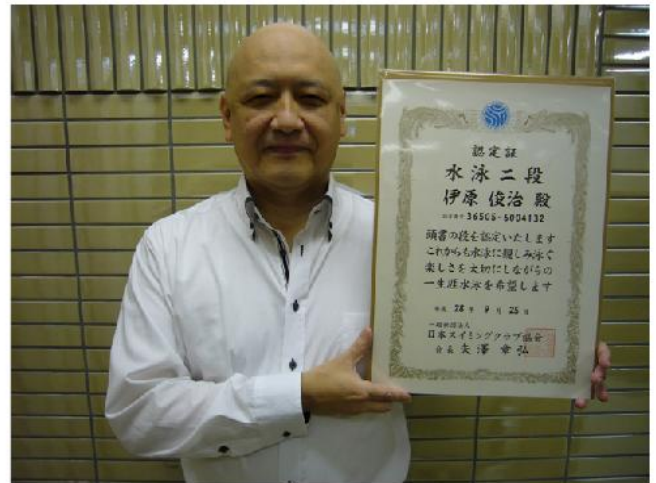 認定証
水泳二段
伊原 俊治 殿
認定番号 36505-5004132
頭書の段を認定いたします
これからも水泳に親しみ泳ぐ
楽しさを大切にしながらの
一生涯水泳を希望します
平成 28 年 9 月 25 日
一般社団法人
日本スイミングクラブ協会
会長 矢澤 章弘